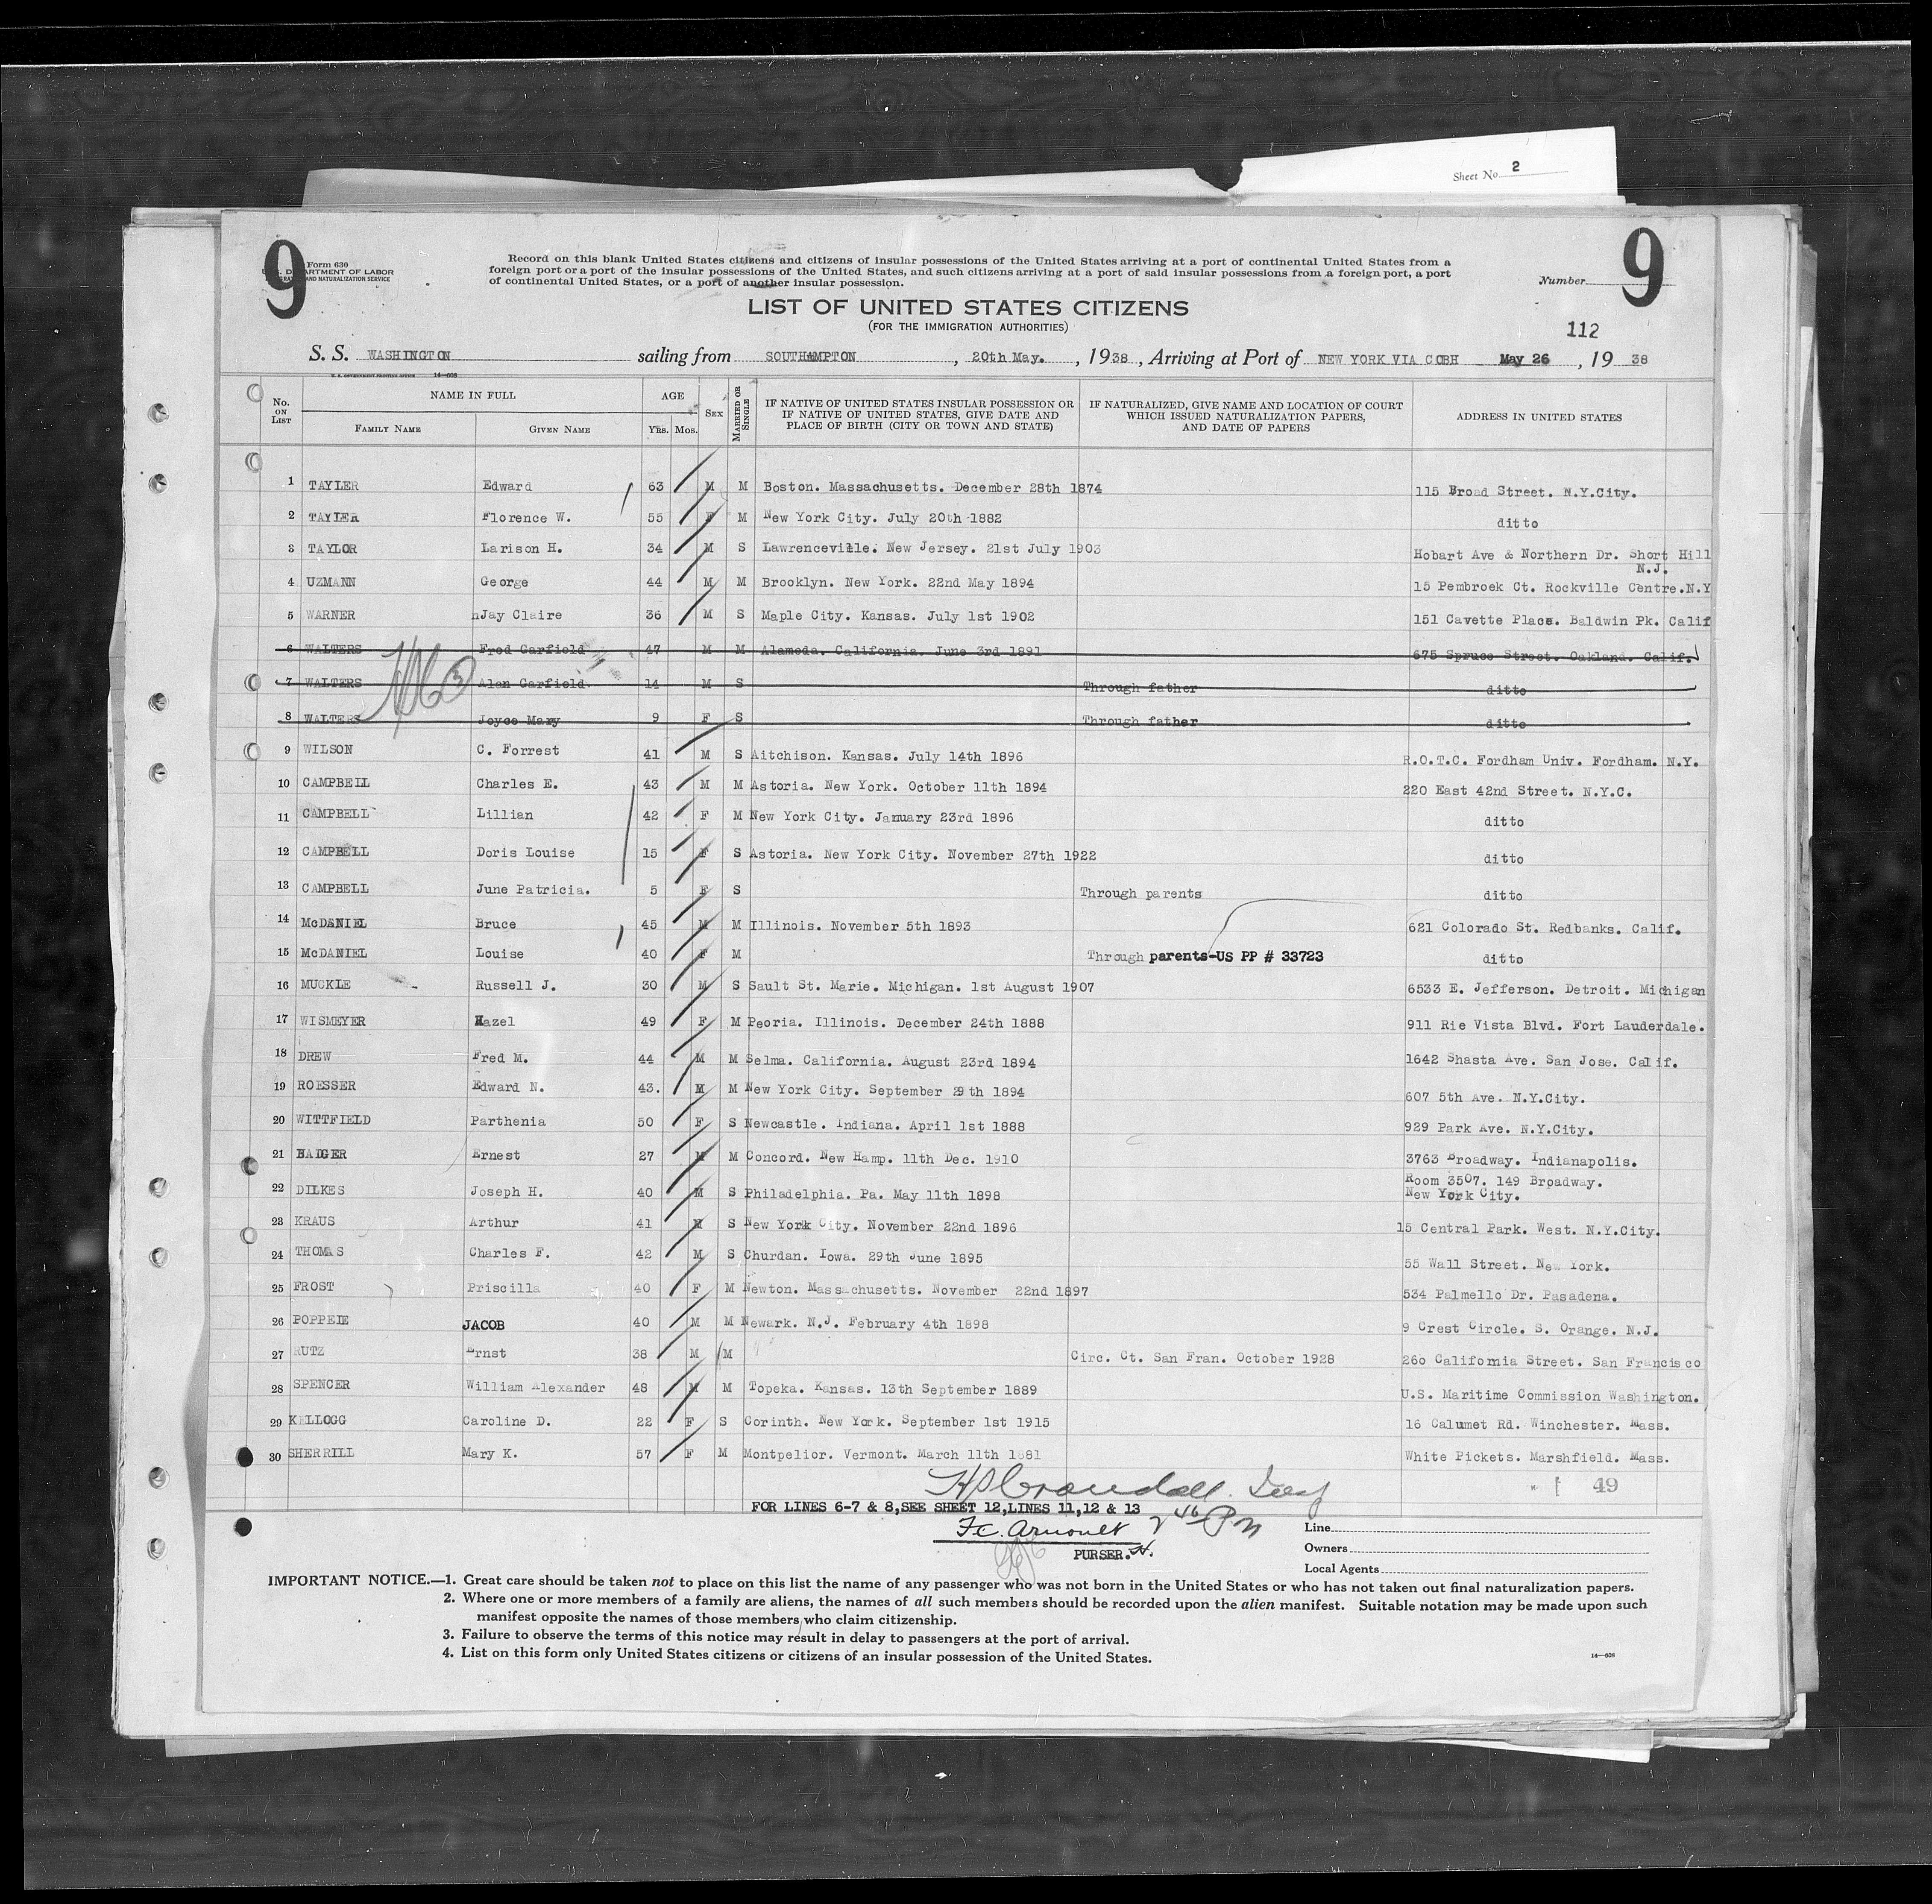 Sheet No. 2
9 9
Form 630
U.S. DEPARTMENT OF LABOR
IMMIGRATION AND NATURALIZATION SERVICE
Record on this blank United States citizens and citizens of insular possessions of the United States arriving at a port of continental United States from a
foreign port or a port of the insular possessions of the United States, and such citizens arriving at a port of said insular possessions from a foreign port, a port
of continental United States, or a port of another insular possession.
Number
LIST OF UNITED STATES CITIZENS
(FOR THE IMMIGRATION AUTHORITIES)
112
S. S. WASHINGTON sailing from SOUTHAMPTON, 20th May., 1938, Arriving at Port of NEW YORK VIA COBH May 26, 1938
U. S. GOVERNMENT PRINTING OFFICE 14—608
No. ON LIST NAME IN FULL AGE SEX MARRIED OR SINGLE IF NATIVE OF UNITED STATES INSULAR POSSESSION OR IF NATIVE OF UNITED STATES, GIVE DATE AND PLACE OF BIRTH (CITY OR TOWN AND STATE) IF NATURALIZED, GIVE NAME AND LOCATION OF COURT WHICH ISSUED NATURALIZATION PAPERS, AND DATE OF PAPERS ADDRESS IN UNITED STATES
FAMILY NAME GIVEN NAME Yrs. Mos.
1 TAYLER Edward 63 M M Boston. Massachusetts. December 28th 1874 115 Broad Street. N.Y.City.
2 TAYLER Florence W. 55 F M New York City. July 20th 1882 ditto
3 TAYLOR Larison H. 34 M S Lawrenceville. New Jersey. 21st July 1903 Hobart Ave & Northern Dr. Short Hill
N.J.
4 UZMANN George 44 M M Brooklyn. New York. 22nd May 1894 15 Pembroek Ct. Rockville Centre.N.Y
5 WARNER nJay Claire 36 M S Maple City. Kansas. July 1st 1902 151 Cavette Place. Baldwin Pk. Calif
6 WALTERS Fred Garfield 47 M M Alameda. California. June 3rd 1891 675 Spruce Street. Oakland. Calif.
7 WALTERS Alan Garfield 14 M S Through father ditto
8 WALTERS Joyce Mary 9 F S Through father ditto
9 WILSON C. Forrest 41 M S Aitchison. Kansas. July 14th 1896 R.O.T.C. Fordham Univ. Fordham. N.Y.
10 CAMPBELL Charles E. 43 M M Astoria. New York. October 11th 1894 220 East 42nd Street. N.Y.C.
11 CAMPBELL Lillian 42 F M New York City. January 23rd 1896 ditto
12 CAMPBELL Doris Louise 15 F S Astoria. New York City. November 27th 1922 ditto
13 CAMPBELL June Patricia. 5 F S Through parents ditto
14 McDANIEL Bruce 45 M M Illinois. November 5th 1893 621 Colorado St. Redbanks. Calif.
15 McDANIEL Louise 40 F M Through parents-US PP # 33723 ditto
16 MUCKLE Russell J. 30 M S Sault St. Marie. Michigan. 1st August 1907 6533 E. Jefferson. Detroit. Michigan
17 WISMEYER Hazel 49 F M Peoria. Illinois. December 24th 1888 911 Rie Vista Blvd. Fort Lauderdale.
18 DREW Fred M. 44 M M Selma. California. August 23rd 1894 1642 Shasta Ave. San Jose. Calif.
19 ROESSER Edward N. 43. M M New York City. September 29th 1894 607 5th Ave. N.Y.City.
20 WITTFIELD Parthenia 50 F S Newcastle. Indiana. April 1st 1888 929 Park Ave. N.Y.City.
21 BADGER Ernest 27 M M Concord. New Hamp. 11th Dec. 1910 3763 Broadway. Indianapolis.
22 DILKES Joseph H. 40 M S Philadelphia. Pa. May 11th 1898 Room 3507. 149 Broadway.
New York City.
23 KRAUS Arthur 41 M S New York City. November 22nd 1896 15 Central Park. West. N.Y.City.
24 THOMAS Charles F. 42 M S Churdan. Iowa. 29th June 1895 55 Wall Street. New York.
25 FROST Priscilla 40 F M Newton. Massachusetts. November 22nd 1897 534 Palmello Dr. Pasadena.
26 POPPEIE JACOB 40 M M Newark. N.J. February 4th 1898 9 Crest Circle. S. Orange. N.J.
27 RUTZ Ernst 38 M M Circ. Ct. San Fran. October 1928 260 California Street. San Francisco
28 SPENCER William Alexander 48 M M Topeka. Kansas. 13th September 1889 U.S. Maritime Commission Washington.
29 KELLOGG Caroline D. 22 F S Corinth. New York. September 1st 1915 16 Calumet Rd. Winchester. Mass.
30 SHERRILL Mary K. 57 F M Montpelior. Vermont. March 11th 1881 White Pickets. Marshfield. Mass.
49
FOR LINES 6-7 & 8,SEE SHEET 12,LINES 11,12 & 13
PURSER.
Line
Owners
Local Agents
IMPORTANT NOTICE.—1. Great care should be taken not to place on this list the name of any passenger who was not born in the United States or who has not taken out final naturalization papers.
2. Where one or more members of a family are aliens, the names of all such members should be recorded upon the alien manifest. Suitable notation may be made upon such
manifest opposite the names of those members who claim citizenship.
3. Failure to observe the terms of this notice may result in delay to passengers at the port of arrival.
4. List on this form only United States citizens or citizens of an insular possession of the United States.
14—608